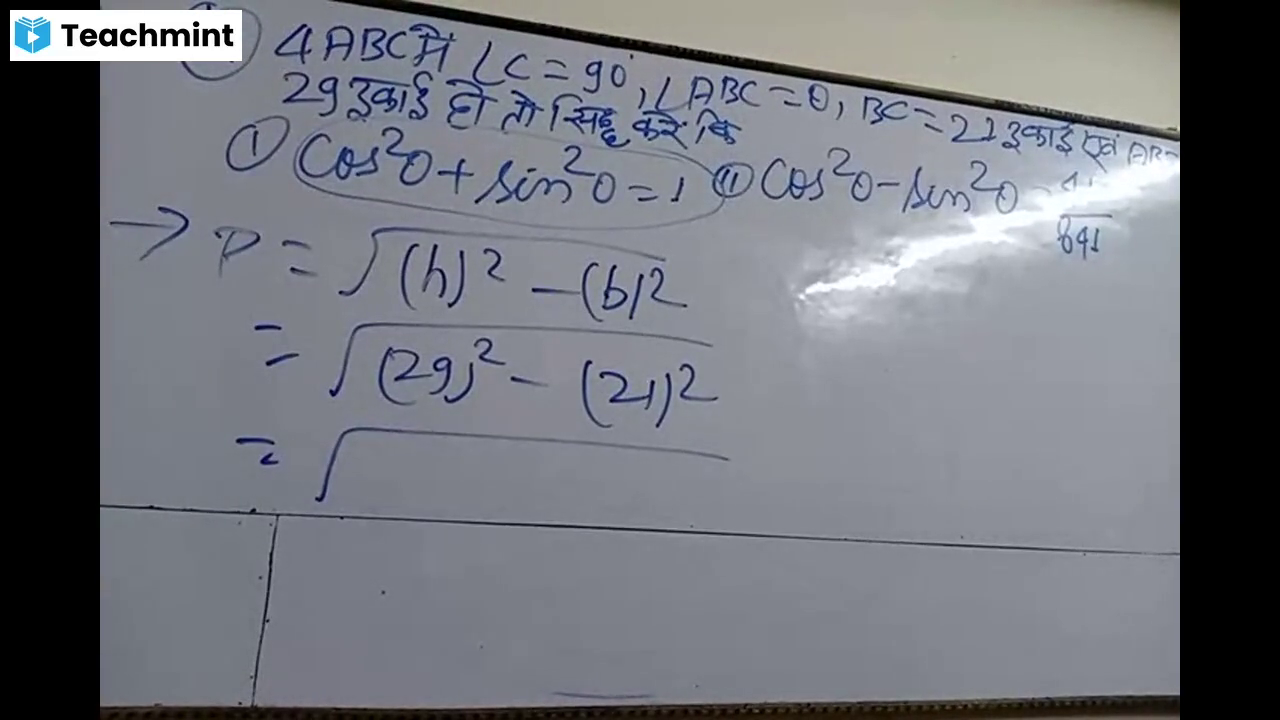 Teachmint
4ABC में ∠C = 90°, ∠ABC = θ, BC = 21 इकाई एवं AB =
29 इकाई हो तो सिद्ध करें कि
① Cos²θ + sin²θ = 1 ⑪ Cos²θ - sin²θ = 41/841
→ P = √(h)² - (b)²
= √(29)² - (21)²
= √